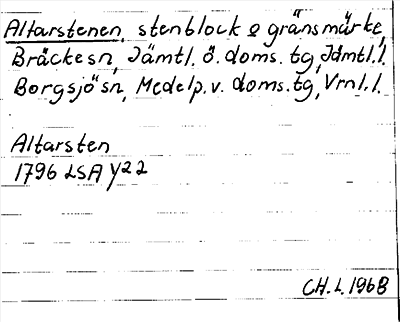 Altarstenen, stenblock o gränsmärke,
Bräcke sn, Jämtl. ö. doms. tg, Jämtl. l.
Borgsjö sn, Medelp. v. doms. tg, Vrnl. l.
Altarsten
1796 LSA Y22
CH. L. 1968